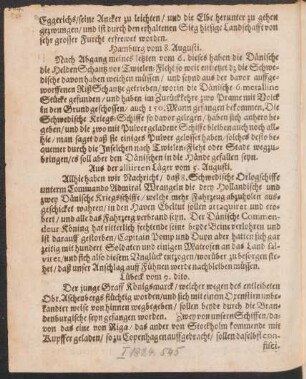 Eggericht/seine Ancker zu leichten/ und die Elbe herunter zu gehen
gezwungen/ und ist durch den erhaltenen Sieg hiesige Landschafft von
sehr grosser Furcht erfreuet worden.
Hamburg vom 8. Augusti.
Nach Abgang meines letzten vom 6. dieses haben die Dänische
die Helden Schantz vor Twielen-Flehe so weit entsetzet dz die Schwe-
dische davon haben weichen müssen/ und seynd aus der davor auffge-
worffenen Schantze getrieben/ worin die Dänische 6 metalline
Stücke gefunden/ und haben im Zurückkehre zwo Prame mit Volck
in den Grund geschossen/ auch 150. Mann gefangen bekommen. Die
Schwedische Kriegs-Schiffe so davor gelegen/ haben sich anhero bege-
ben/ und die zwo mit Pulver geladene Schiffe bleiben auch noch all-
hie/ man sagt daß sie einiges Pulver gelösset haben/ solches desto be-
quemer durch die Inselchen nach Twielen-Flehe oder Stade wegzu-
bringen/ es soll aber den Dänischen in die Hände gefallen seyn.
Aus der alliirten Läger vom 5. Augusti.
Allhie haben wir Nachricht/ daß 8. Schwedische Orlegschiffe
unterm Commando Admiral Wrangeln die drey Holländische und
zwey Dänische Kriegsschiffe/ welche mehr Fahrzeug abzuholen aus-
geschicket wahren/ in den Haven Ebeltut sollen attacquiret und ero-
bert/ und alle das Fahrzeug verbrand seyn. Der Dänische Commen-
deur Köning hat ritterlich fechtende seine beyde Beine verlohren und
ist darauff gestorben/ Capitain Pomp und Duyn aber hatten sich gar
zeitig mit hundert Soldaten und einigen Matrosen an das Land sal-
viret/ und sich also diesem Unglück entzogen/ worüber zu besorgen ste-
het/ daß unser Anschlag auff Fühnen werde nachbleiben müssen.
Lübeck vom 9. dito.
Der junge Graff Königsmarck/ welcher wegen des entleibeten
Obr. Aschenbergs flüchtig worden/ und sich mit einem Openstirn unbe-
kandter weise von hinnen wegbegeben/ sollen beyde durch die Bran-
denburgische seyn gefangen worden. Zwey von unsern Schiffen/ da-
von das eine von Riga/ das ander von Stockholm kommende mit
Kupffer geladen/ so zu Copenhagen auffgebracht/ sollen daselbst con-
fisci-